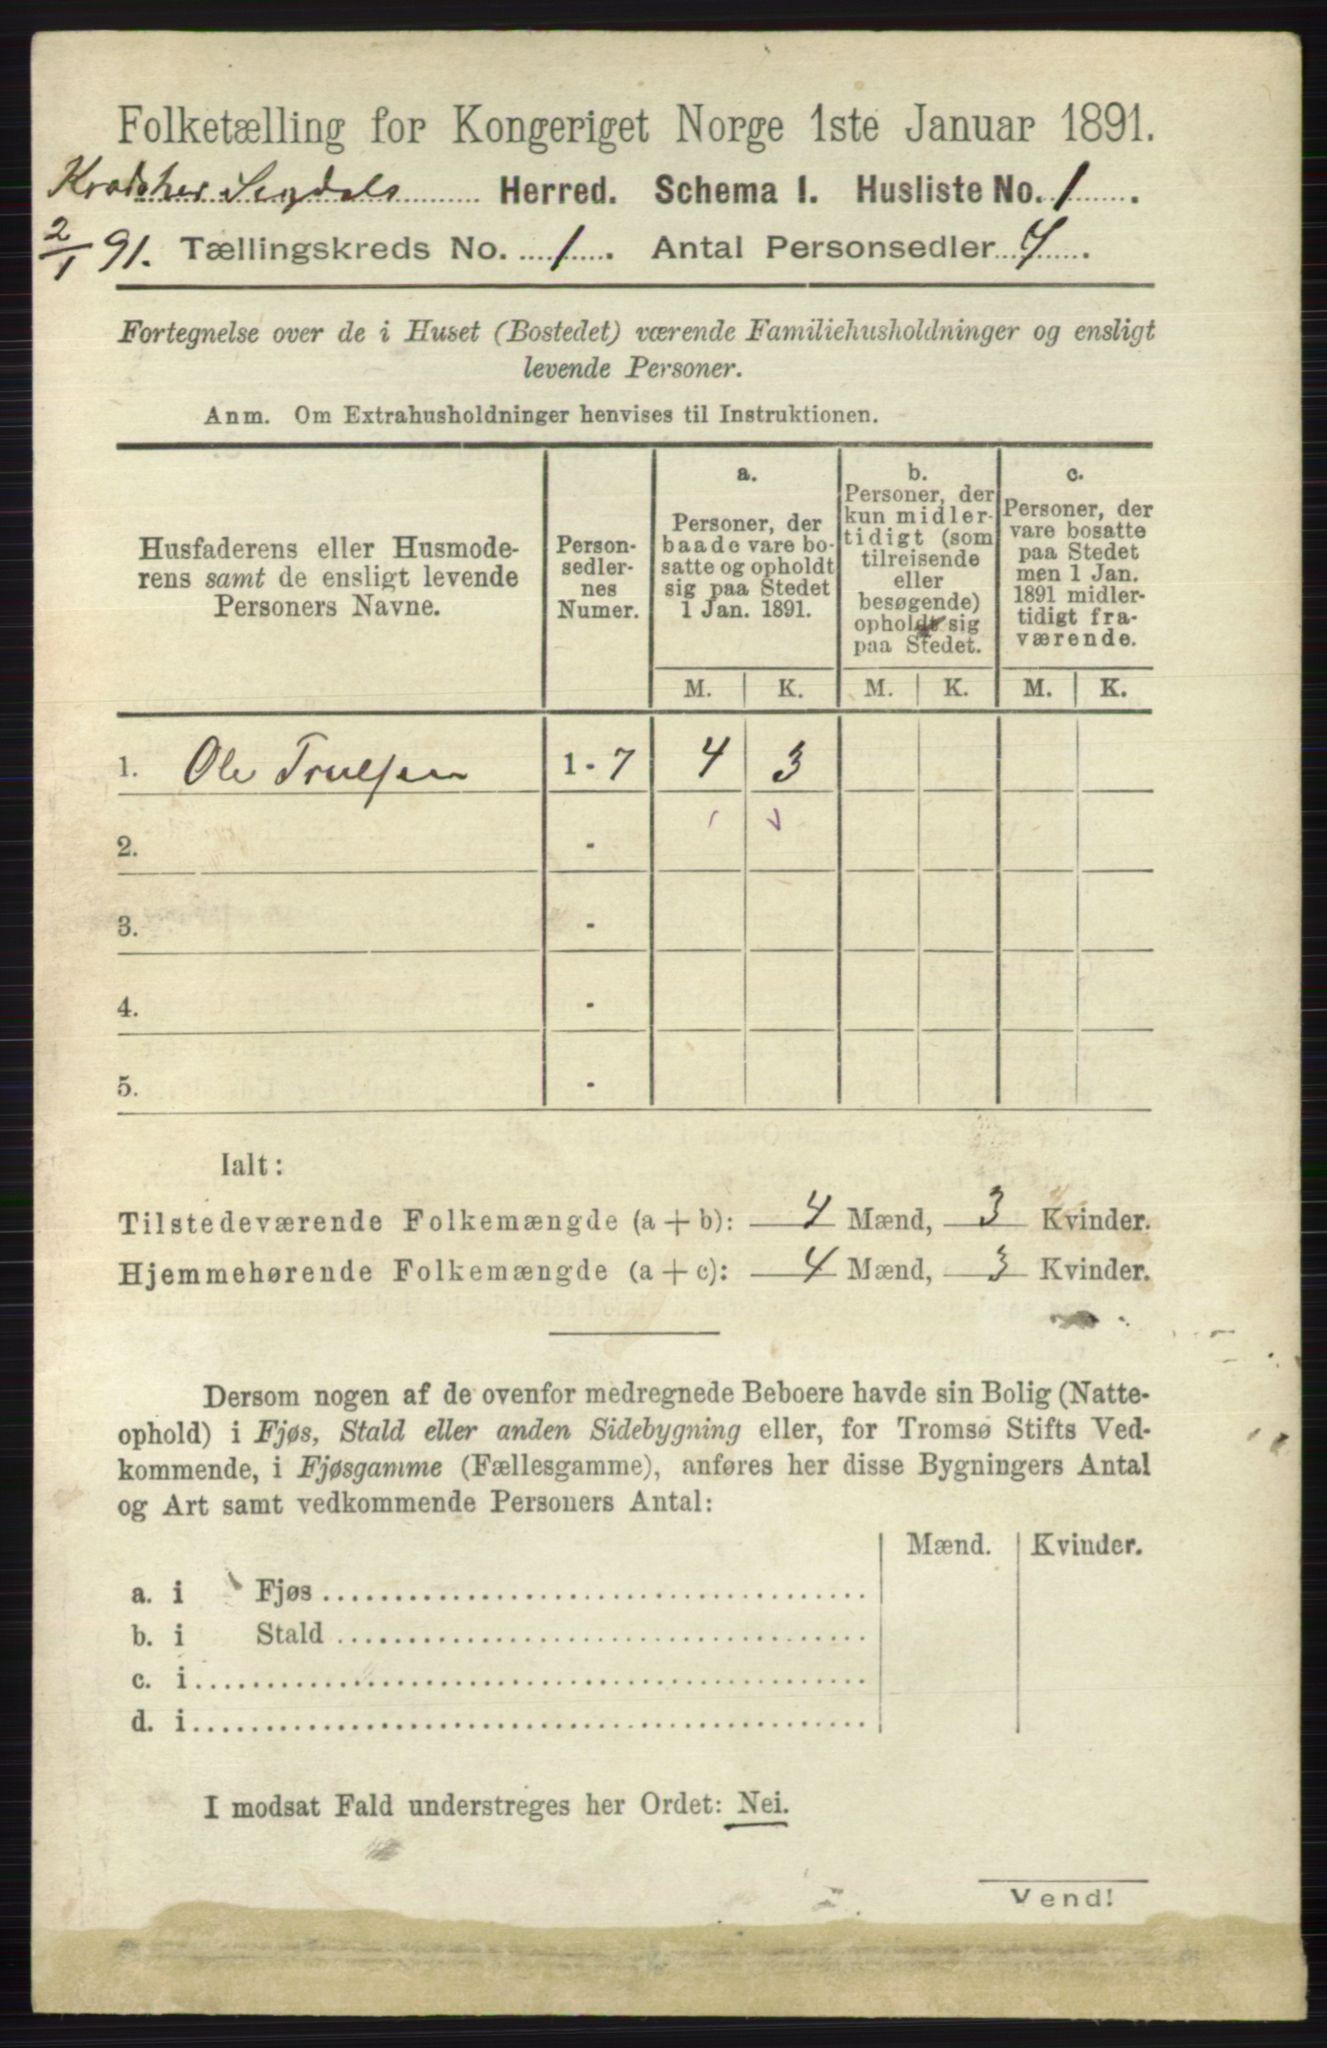 Folketælling for Kongeriget Norge 1ste Januar 1891.
Sigdals Herred. Schema I. Husliste No. 1.
2/1 91. Tællingskreds No. 1. Antal Personsedler 7.
Fortegnelse over de i Huset (Bostedet) værende Familiehusholdninger og ensligt
levende Personer.
Anm. Om Extrahusholdninger henvises til Instruktionen.
Husfaderens eller Husmode-
rens samt de ensligt levende
Personers Navne.
Person-
sedler-
nes
Numer.
a.
Personer, der
baade vare bo-
satte og opholdt
sig paa Stedet
1 Jan. 1891.
b.
Personer, der
kun midler-
tidigt (som
tilreisende
eller
besøgende)
opholdt sig
paa Stedet.
c.
Personer, der
vare bosatte
paa Stedet
men 1 Jan.
1891 midler-
tidigt fra-
værende.
M. K. M. K. M. K.
1. Ole Truelsen 1 - 7 4 3
2. -
3. -
4. -
5. -
Ialt:
Tilstedeværende Folkemængde (a + b): 4 Mænd, 3 Kvinder.
Hjemmehørende Folkemængde (a + c): 4 Mænd, 3 Kvinder.
Dersom nogen af de ovenfor medregnede Beboere havde sin Bolig (Natte-
ophold) i Fjøs, Stald eller anden Sidebygning eller, for Tromsø Stifts Ved-
kommende, i Fjøsgamme (Fællesgamme), anføres her disse Bygningers Antal
og Art samt vedkommende Personers Antal:
Mænd. Kvinder.
a. i Fjøs
b. i Stald
c. i
d. i
I modsat Fald understreges her Ordet: Nei.
Vend!